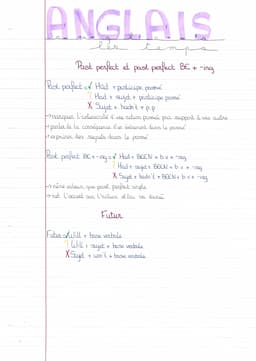 ANGLAIS
les temps
Past perfect et past perfect BE + -ing
Past perfect : ✓ Had + participe passé
? Had + sujet + participe passé
X Sujet + hadn't + p.p
→ marquer l'antériorité d'une action passée par rapport à une autre
→ parler de la conséquence d'un événement dans le passé
→ exprimer des regrets dans le passé
Past perfect BE + -ing : ✓ Had + BEEN + b.v + -ing
? Had + sujet + BEEN + b.v + -ing
X Sujet + hadn't + BEEN + b.v + -ing
→ même valeur que past perfect simple
→ met l'accent sur l'action et/ou sa durée
Futur
Futur : ✓ Will + base verbale
? Will + sujet + base verbale
X Sujet + won't + base verbale